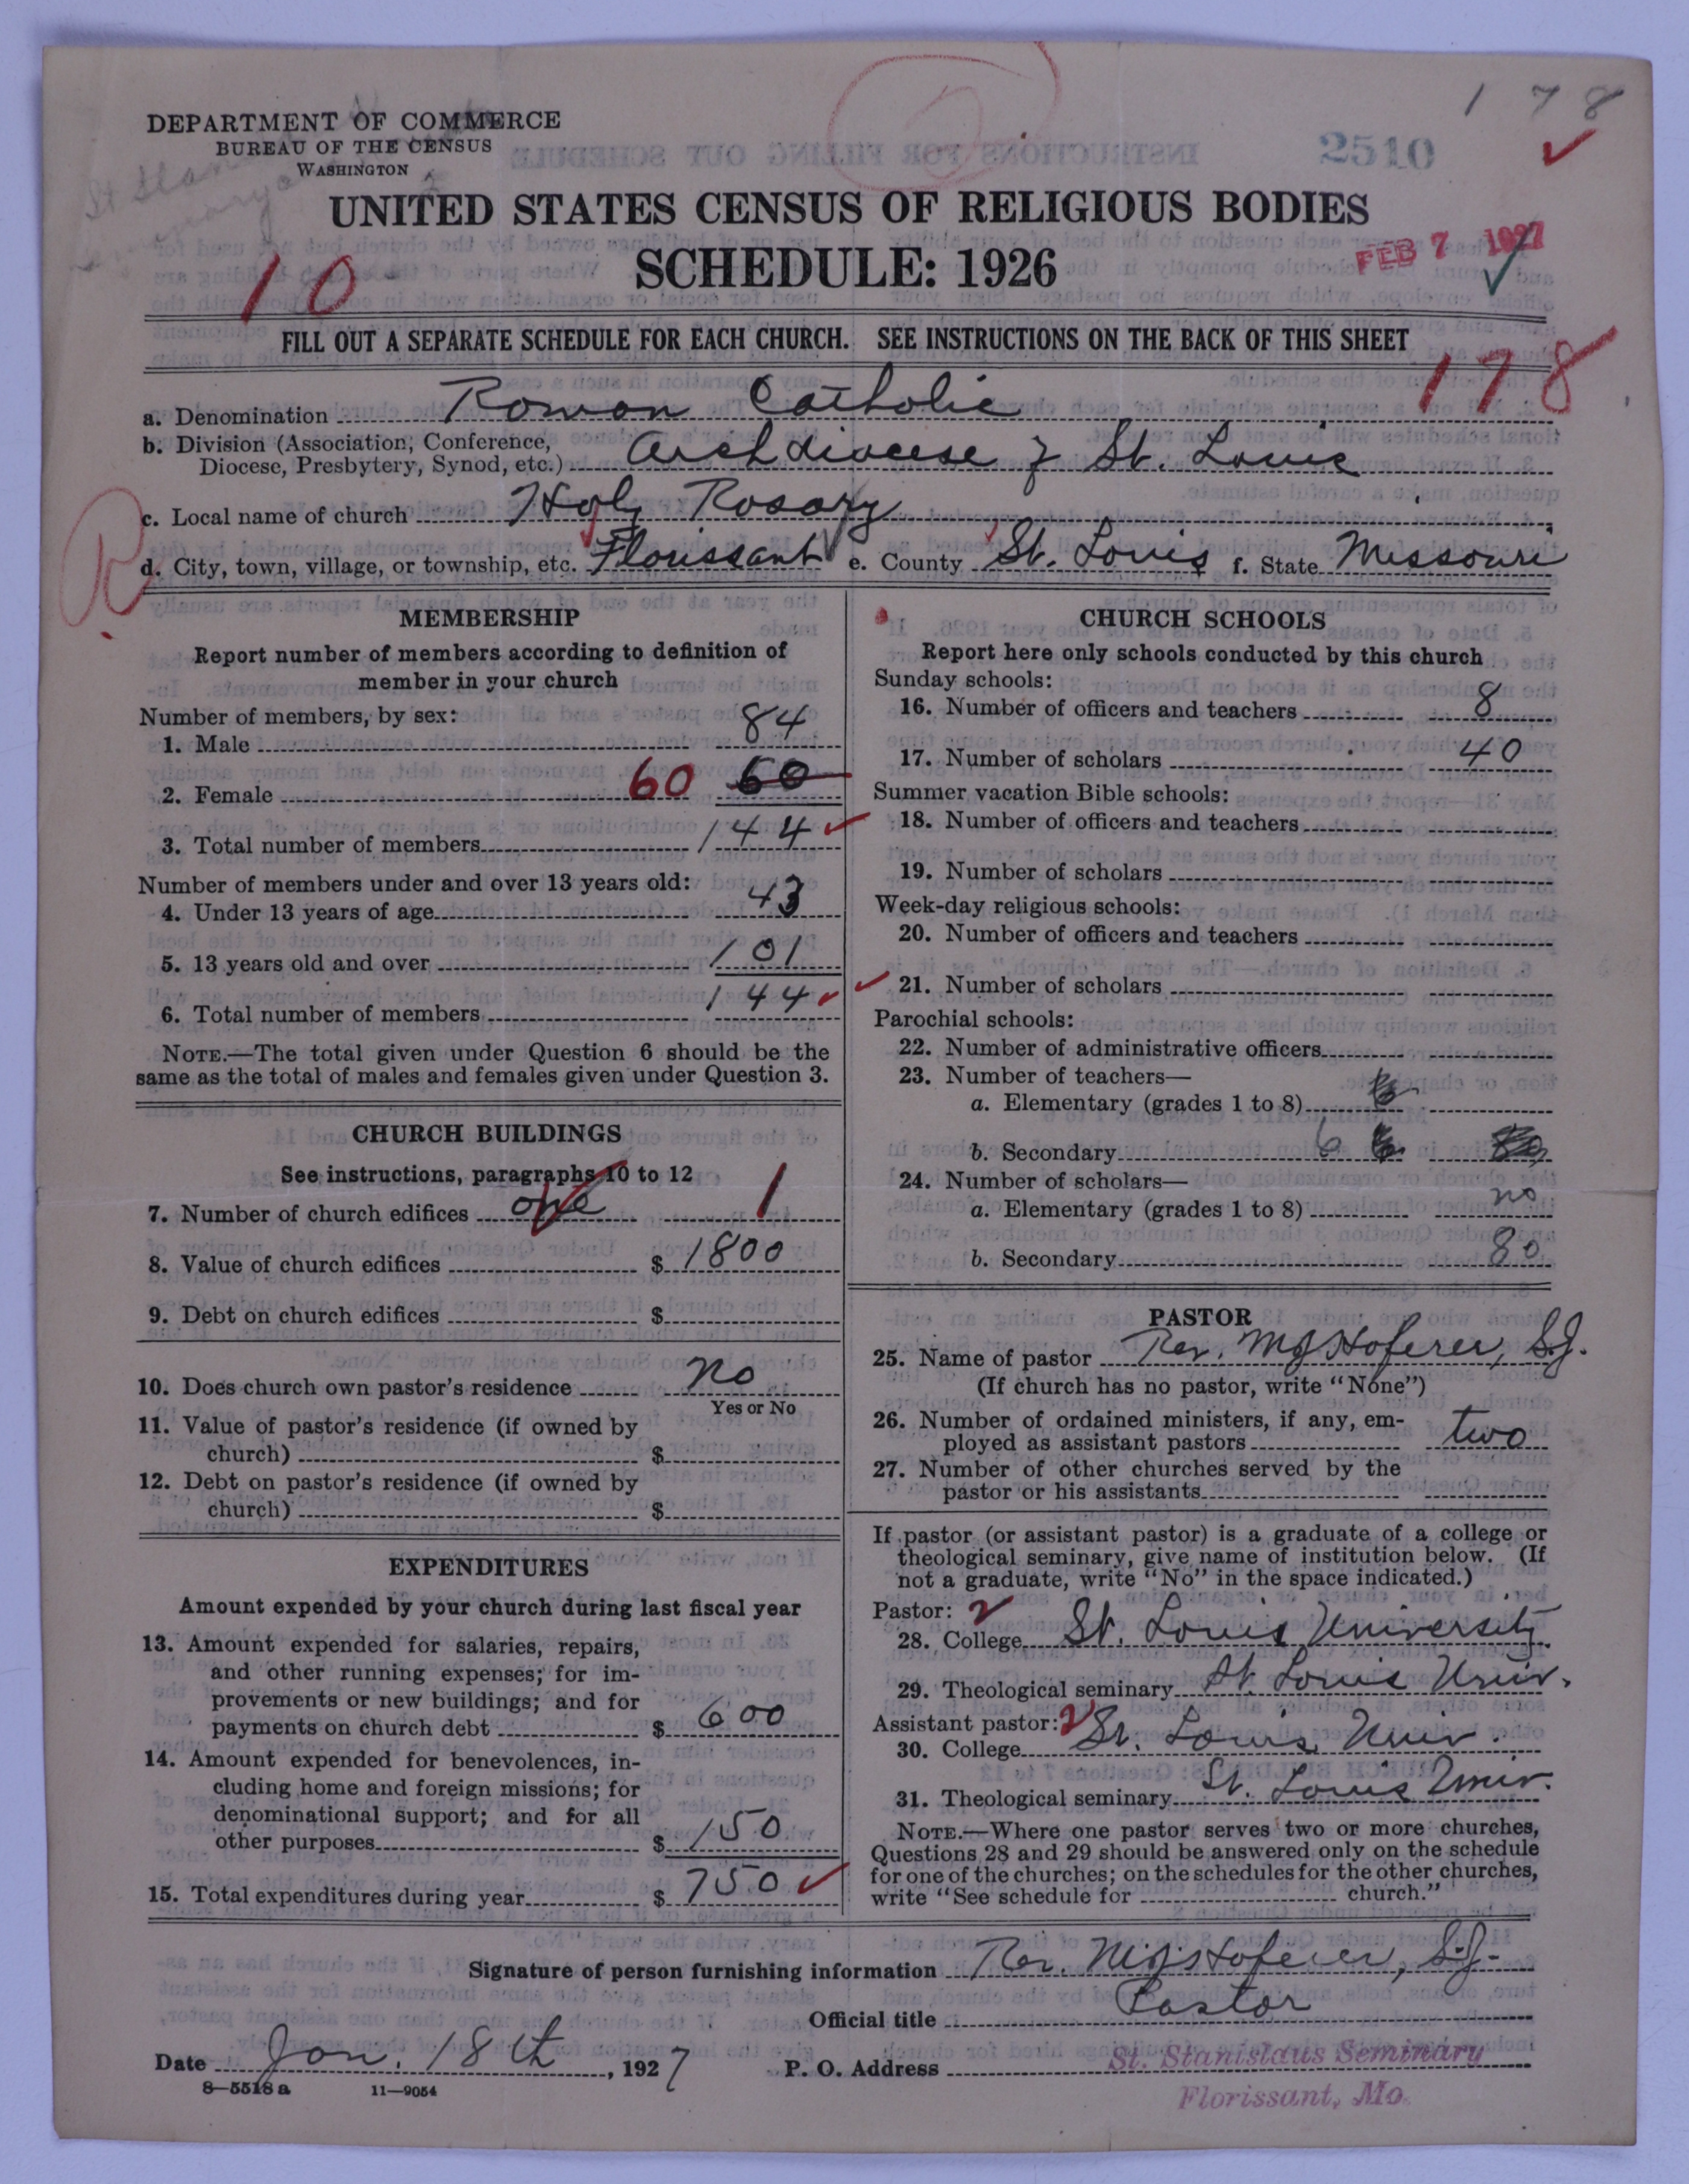 1 7 8
DEPARTMENT OF COMMERCE
BUREAU OF THE CENSUS
WASHINGTON
2510
UNITED STATES CENSUS OF RELIGIOUS BODIES
SCHEDULE: 1926
FEB 7 1927
10
FILL OUT A SEPARATE SCHEDULE FOR EACH CHURCH. SEE INSTRUCTIONS ON THE BACK OF THIS SHEET
178
a. Denomination Roman Catholic
b. Division (Association, Conference,
Diocese, Presbytery, Synod, etc.) Archdiocese of St. Louis
c. Local name of church Holy Rosary
R
d. City, town, village, or township, etc. Florissant e. County St. Louis f. State Missouri
MEMBERSHIP
Report number of members according to definition of
member in your church
Number of members, by sex:
1. Male 84
2. Female 60 60
3. Total number of members 144
Number of members under and over 13 years old:
4. Under 13 years of age 43
5. 13 years old and over 101
6. Total number of members 144
NOTE.—The total given under Question 6 should be the
same as the total of males and females given under Question 3.
CHURCH BUILDINGS
See instructions, paragraphs 10 to 12
7. Number of church edifices one 1
8. Value of church edifices $ 1800
9. Debt on church edifices $
10. Does church own pastor's residence no
Yes or No
11. Value of pastor's residence (if owned by
church) $
12. Debt on pastor's residence (if owned by
church) $
EXPENDITURES
Amount expended by your church during last fiscal year
13. Amount expended for salaries, repairs,
and other running expenses; for im-
provements or new buildings; and for
payments on church debt $ 600
14. Amount expended for benevolences, in-
cluding home and foreign missions; for
denominational support; and for all
other purposes $ 150
15. Total expenditures during year $ 750
CHURCH SCHOOLS
Report here only schools conducted by this church
Sunday schools:
16. Number of officers and teachers 8
17. Number of scholars 40
Summer vacation Bible schools:
18. Number of officers and teachers
19. Number of scholars
Week-day religious schools:
20. Number of officers and teachers
21. Number of scholars
Parochial schools:
22. Number of administrative officers
23. Number of teachers—
a. Elementary (grades 1 to 8)
b. Secondary 6
24. Number of scholars—
a. Elementary (grades 1 to 8) no
b. Secondary 80
PASTOR
25. Name of pastor Rev. M J Hoferer, S.J.
(If church has no pastor, write "None")
26. Number of ordained ministers, if any, em-
ployed as assistant pastors two
27. Number of other churches served by the
pastor or his assistants
If pastor (or assistant pastor) is a graduate of a college or
theological seminary, give name of institution below. (If
not a graduate, write "No" in the space indicated.)
Pastor: 2
28. College St. Louis University
29. Theological seminary St. Louis Univ.
Assistant pastor: 2
30. College St. Louis Univ.
31. Theological seminary St. Louis Univ.
NOTE.—Where one pastor serves two or more churches,
Questions 28 and 29 should be answered only on the schedule
for one of the churches; on the schedules for the other churches,
write "See schedule for church."
Signature of person furnishing information Rev. M.J. Hoferer, S.J.
Official title Pastor
Date Jan. 18th, 1927 P. O. Address St. Stanislaus Seminary
8—5518 a 11—9054 Florissant, Mo.